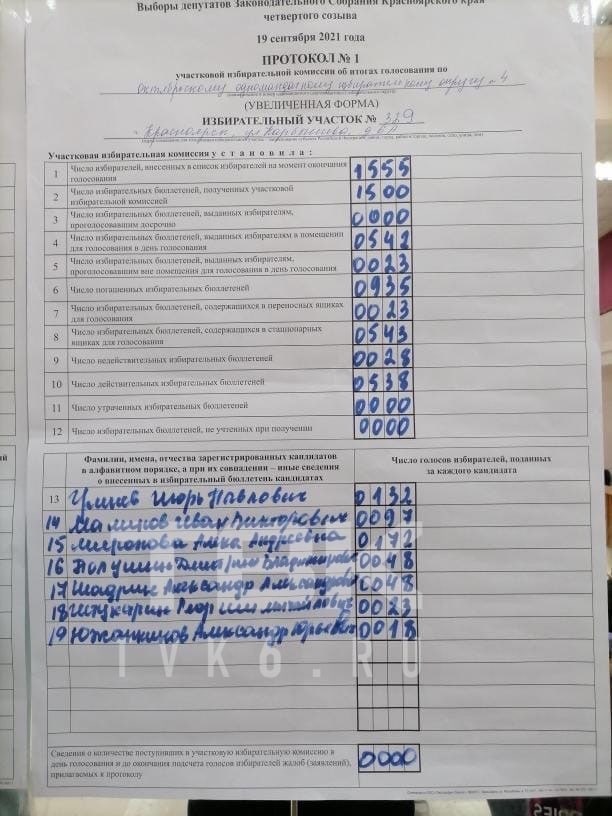 Выборы депутатов Законодательного Собрания Красноярского края
четвертого созыва
19 сентября 2021 года
ПРОТОКОЛ № 1
участковой избирательной комиссии об итогах голосования по
Октябрьскому одномандатному избирательному округу № 4
(УВЕЛИЧЕННАЯ ФОРМА)
ИЗБИРАТЕЛЬНЫЙ УЧАСТОК № 329
г. Красноярск, ул. Карбышева, д.
Участковая избирательная комиссия установила:
1 Число избирателей, внесенных в список избирателей на момент окончания голосования 1555
2 Число избирательных бюллетеней, полученных участковой избирательной комиссией 1500
3 Число избирательных бюллетеней, выданных избирателям, проголосовавшим досрочно 0000
4 Число избирательных бюллетеней, выданных избирателям в помещении для голосования в день голосования 0542
5 Число избирательных бюллетеней, выданных избирателям, проголосовавшим вне помещения для голосования в день голосования 0023
6 Число погашенных избирательных бюллетеней 0935
7 Число избирательных бюллетеней, содержащихся в переносных ящиках для голосования 0023
8 Число избирательных бюллетеней, содержащихся в стационарных ящиках для голосования 0543
9 Число недействительных избирательных бюллетеней 0028
10 Число действительных избирательных бюллетеней 0538
11 Число утраченных избирательных бюллетеней 0000
12 Число избирательных бюллетеней, не учтенных при получении 0000
Фамилии, имена, отчества зарегистрированных кандидатов
в алфавитном порядке, а при их совпадении – иные сведения
о внесенных в избирательный бюллетень кандидатах
Число голосов избирателей, поданных
за каждого кандидата
13 Игорь Павлович 0132
14 Малинов Иван Викторович 0097
15 Миронова Алена Андреевна 0172
16 Полушин Дмитрий Владимирович 0048
17 Шадрин Александр Александрович 0048
18 Штукарин Георгий Михайлович 0023
19 Южанников Александр Юрьевич 0018
TVK6.RU
Сведения о количестве поступивших в участковую избирательную комиссию в
день голосования и до окончания подсчета голосов избирателей жалоб (заявлений),
прилагаемых к протоколу
0000